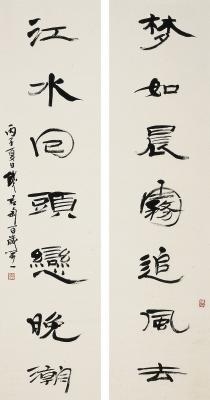 梦如晨霧追風去
江水回頭戀晚潮
丙子夏日